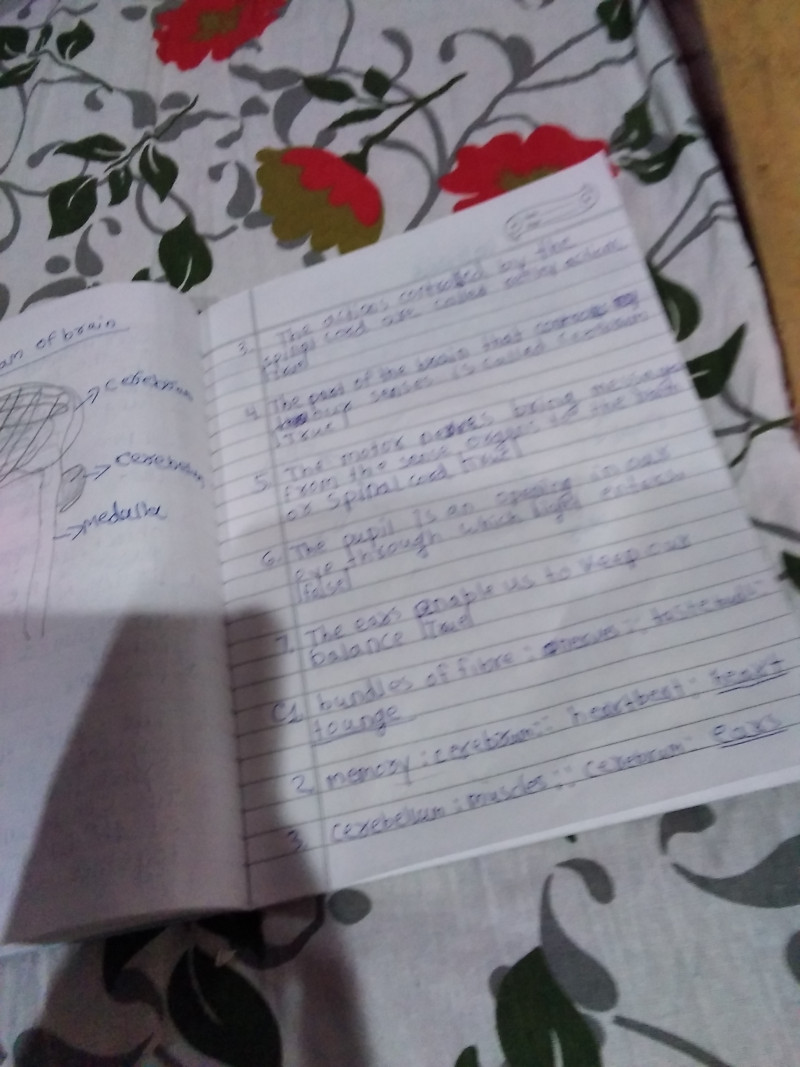 am of brain
cerebrum
cerebelum
medulla
3. The actions controlled by the
spinal cord are called actions
True
4. The part of the brain that
our senses is called cerebrum
True
5. The motor nerves bring message
from the sense organs to the
or spinal cord True
6. The pupil is an opening in our
eye through which light enters.
false
7. The ears enable us to keep our
balance True
C1 bundles of fibre : :: taste
tounge
2. memory : cerebrum :: heartbeat :
3. cerebellum : muscles :: cerebrum: Ears